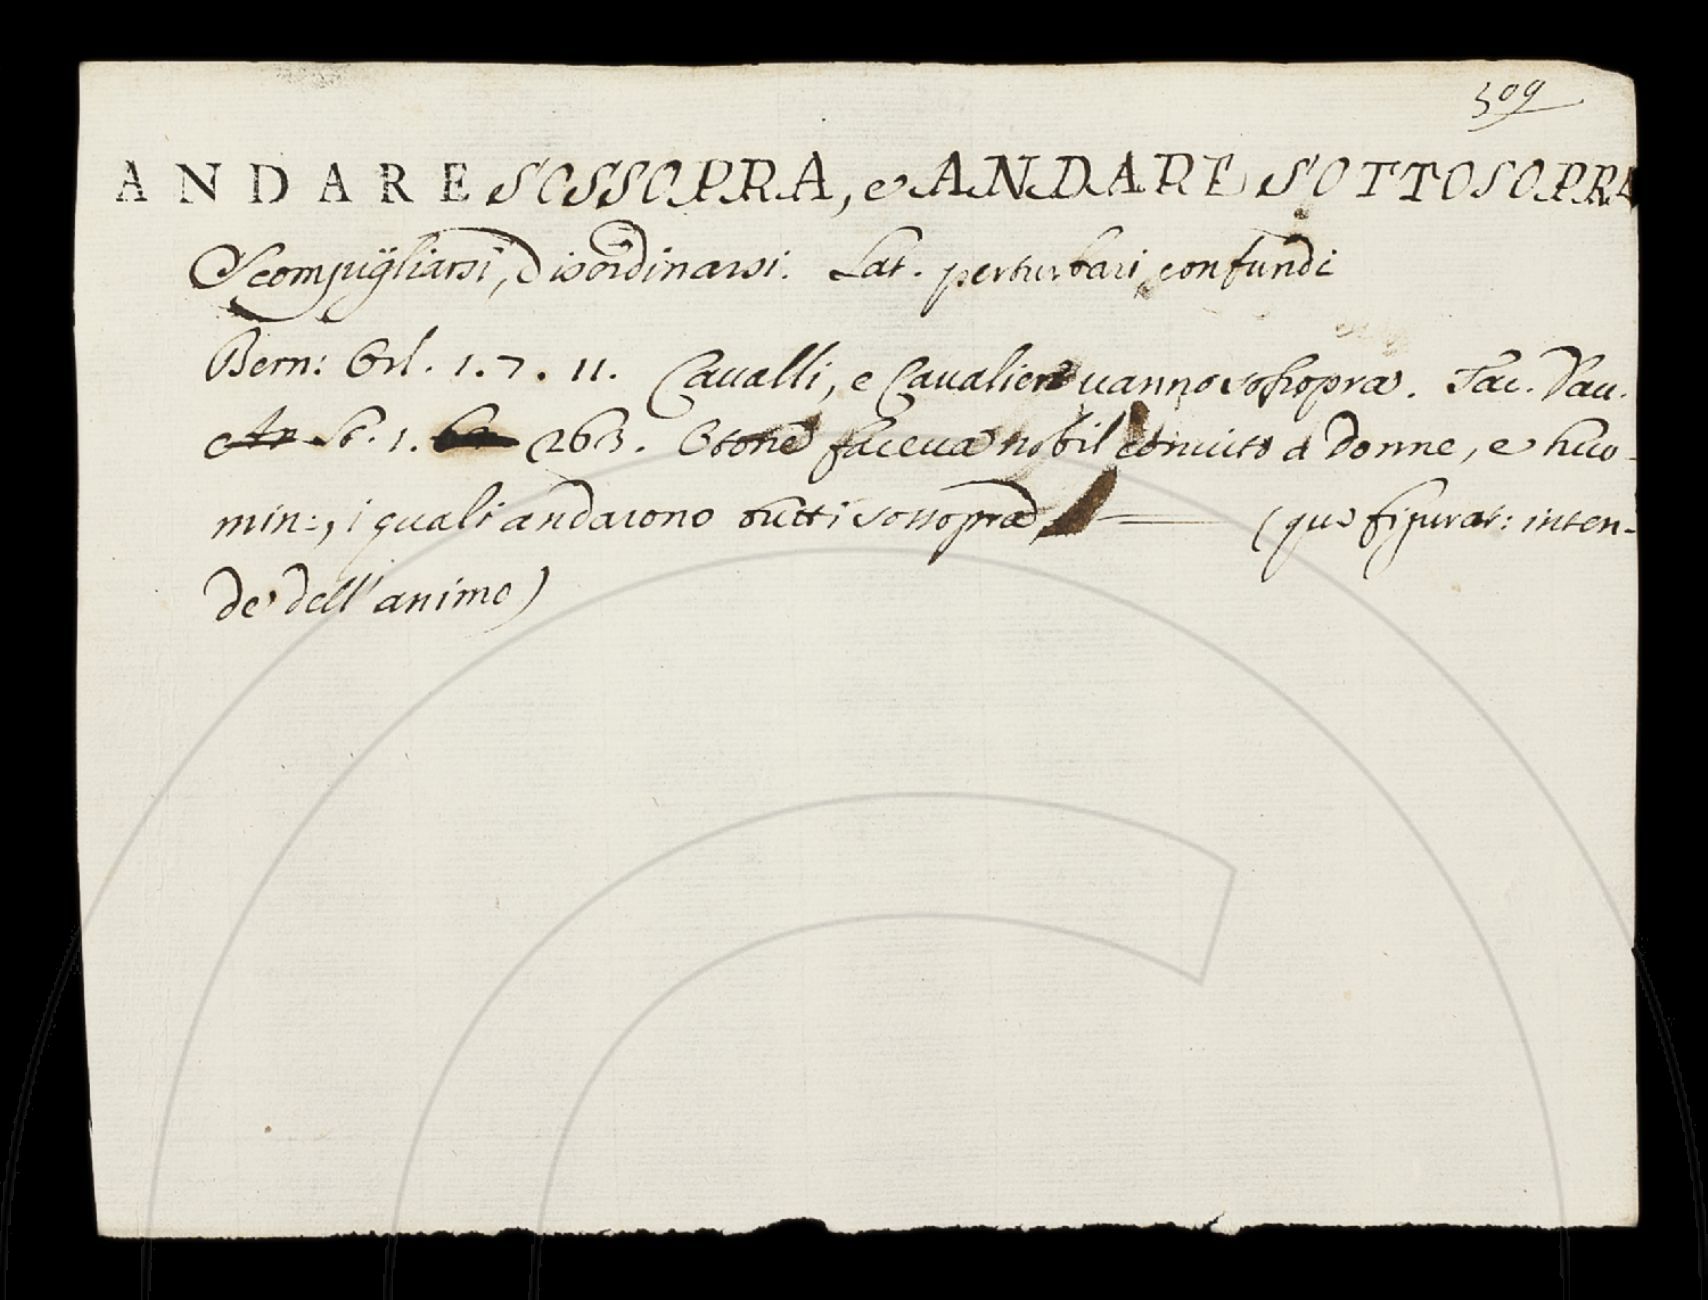 509
ANDARE SOSSOPRA, e ANDARE SOTTOSOPRA
Scompigliarsi, Disordinarsi. Lat. perturbari, confundi
Bern: Orl. 1. 7. 11. Cavalli, e Cavalieri uanno sossopra. Tac. Dau.
An St. 1. 263. Otone faceua nobil conuito a Donne, e huo-
min:, i quali andarono tutti sossopra, — (quì figurat: inten-
de dell'animo)